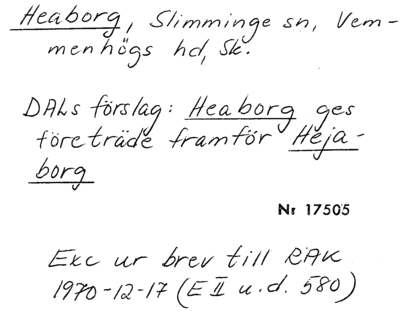 Heaborg, Slimminge sn, Vem-
menhögs hd, Sk.
DALs förslag: Heaborg ges
företräde framför Heja-
borg
Nr 17505
Exc ur brev till RAK
1970-12-17 (E II u.d. 580)